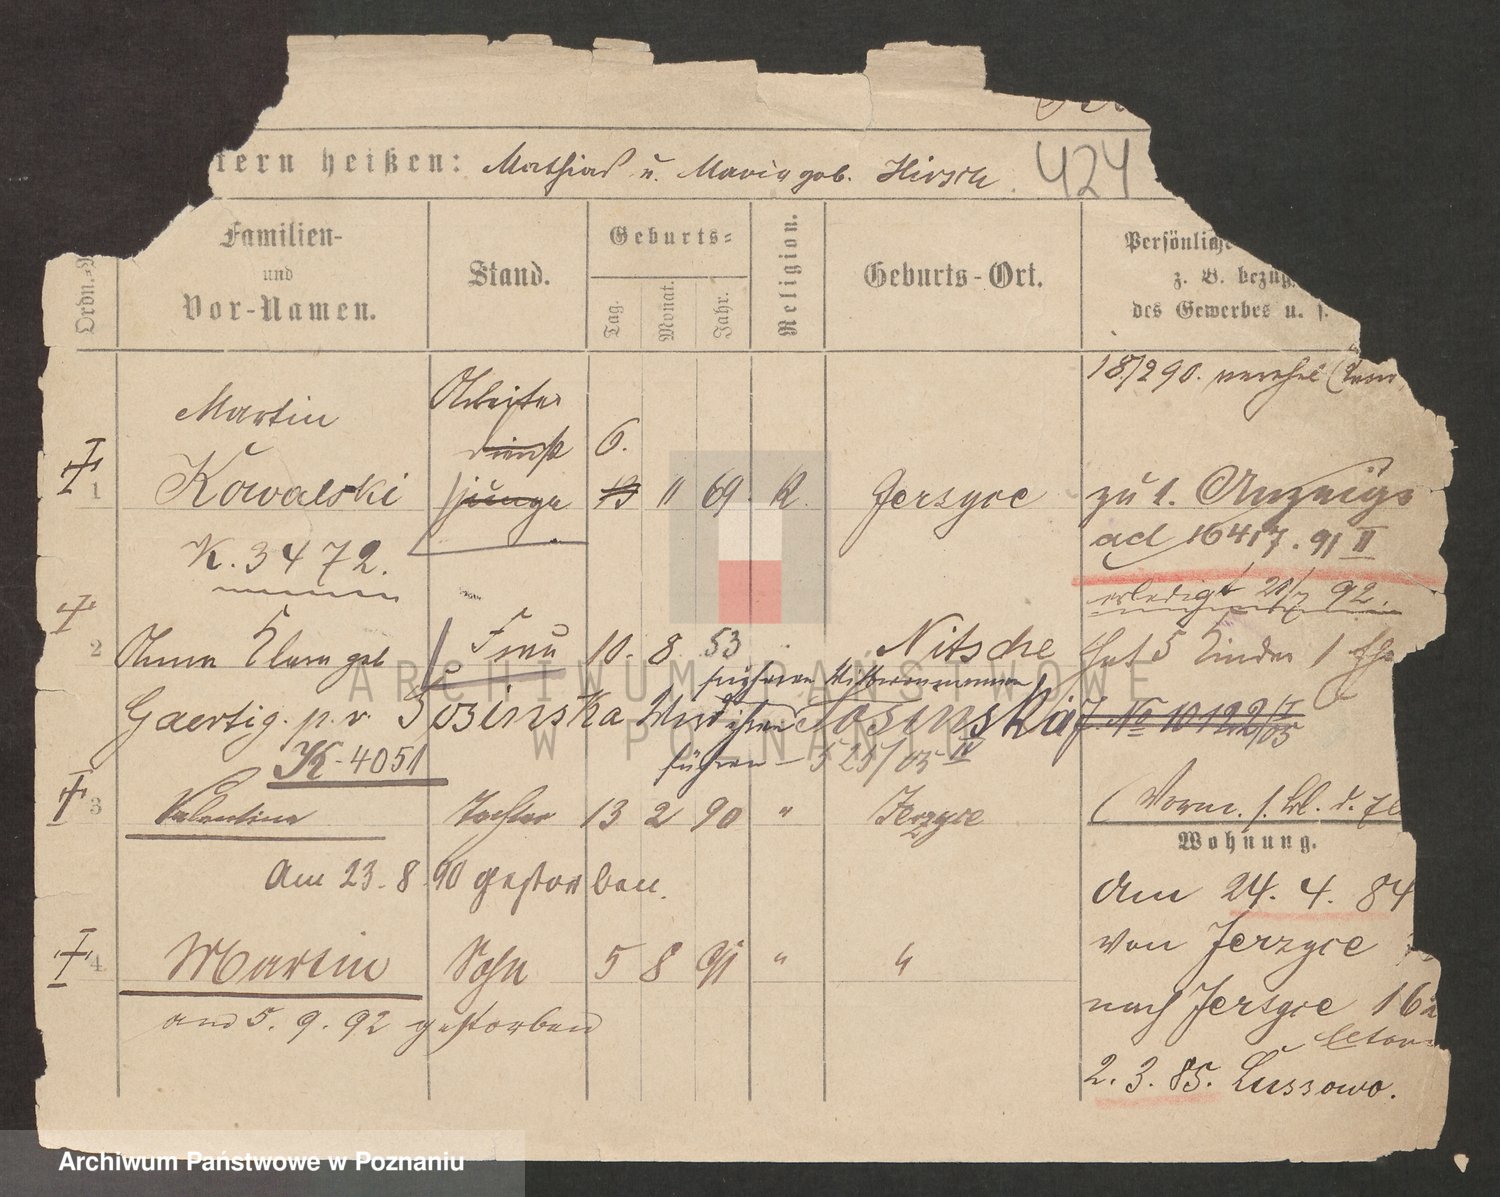 tern heißen: Mathias u. Maria geb. Hirsch. 424
Ordn.=
Familien-
und
Vor-Namen.
Stand.
Geburts=
Tag.
Monat.
Jahr.
Religion.
Geburts-Ort.
Persönliche
z. B. bezüg.
des Gewerbes u. s.
18/2 90. verehel
Martin Arbeiter
dienst 6.
1 Kowalski junge 13 11 69 K. Jersyce zu 1. Anzeige
K. 3472. ad 16417. 91 II
erledigt 92.
2 Anna Clara geb Frau 10. 8. 53 Nitsche hat 5 Kinder 1 Ehe
früheren
Gaertig. p. v. Sosinska Wird ihren Sosinska J. No 10122/05
K-4051 führen - 525/05 IV
3 Valentine Tochter 13 2 90 " Jerzyce (Vorm. f.
Wohnung.
Am 23. 8 90 gestorben. Am 24. 4. 84
von Jerzyce
4 Martin Sohn 5 8 91 " "
nach Jersyce 16
am 5. 9. 92 gestorben
2. 3. 85. Lussowo.
ARCHIWUM PAŃSTWOWE
W POZNANIU
Archiwum Państwowe w Poznaniu